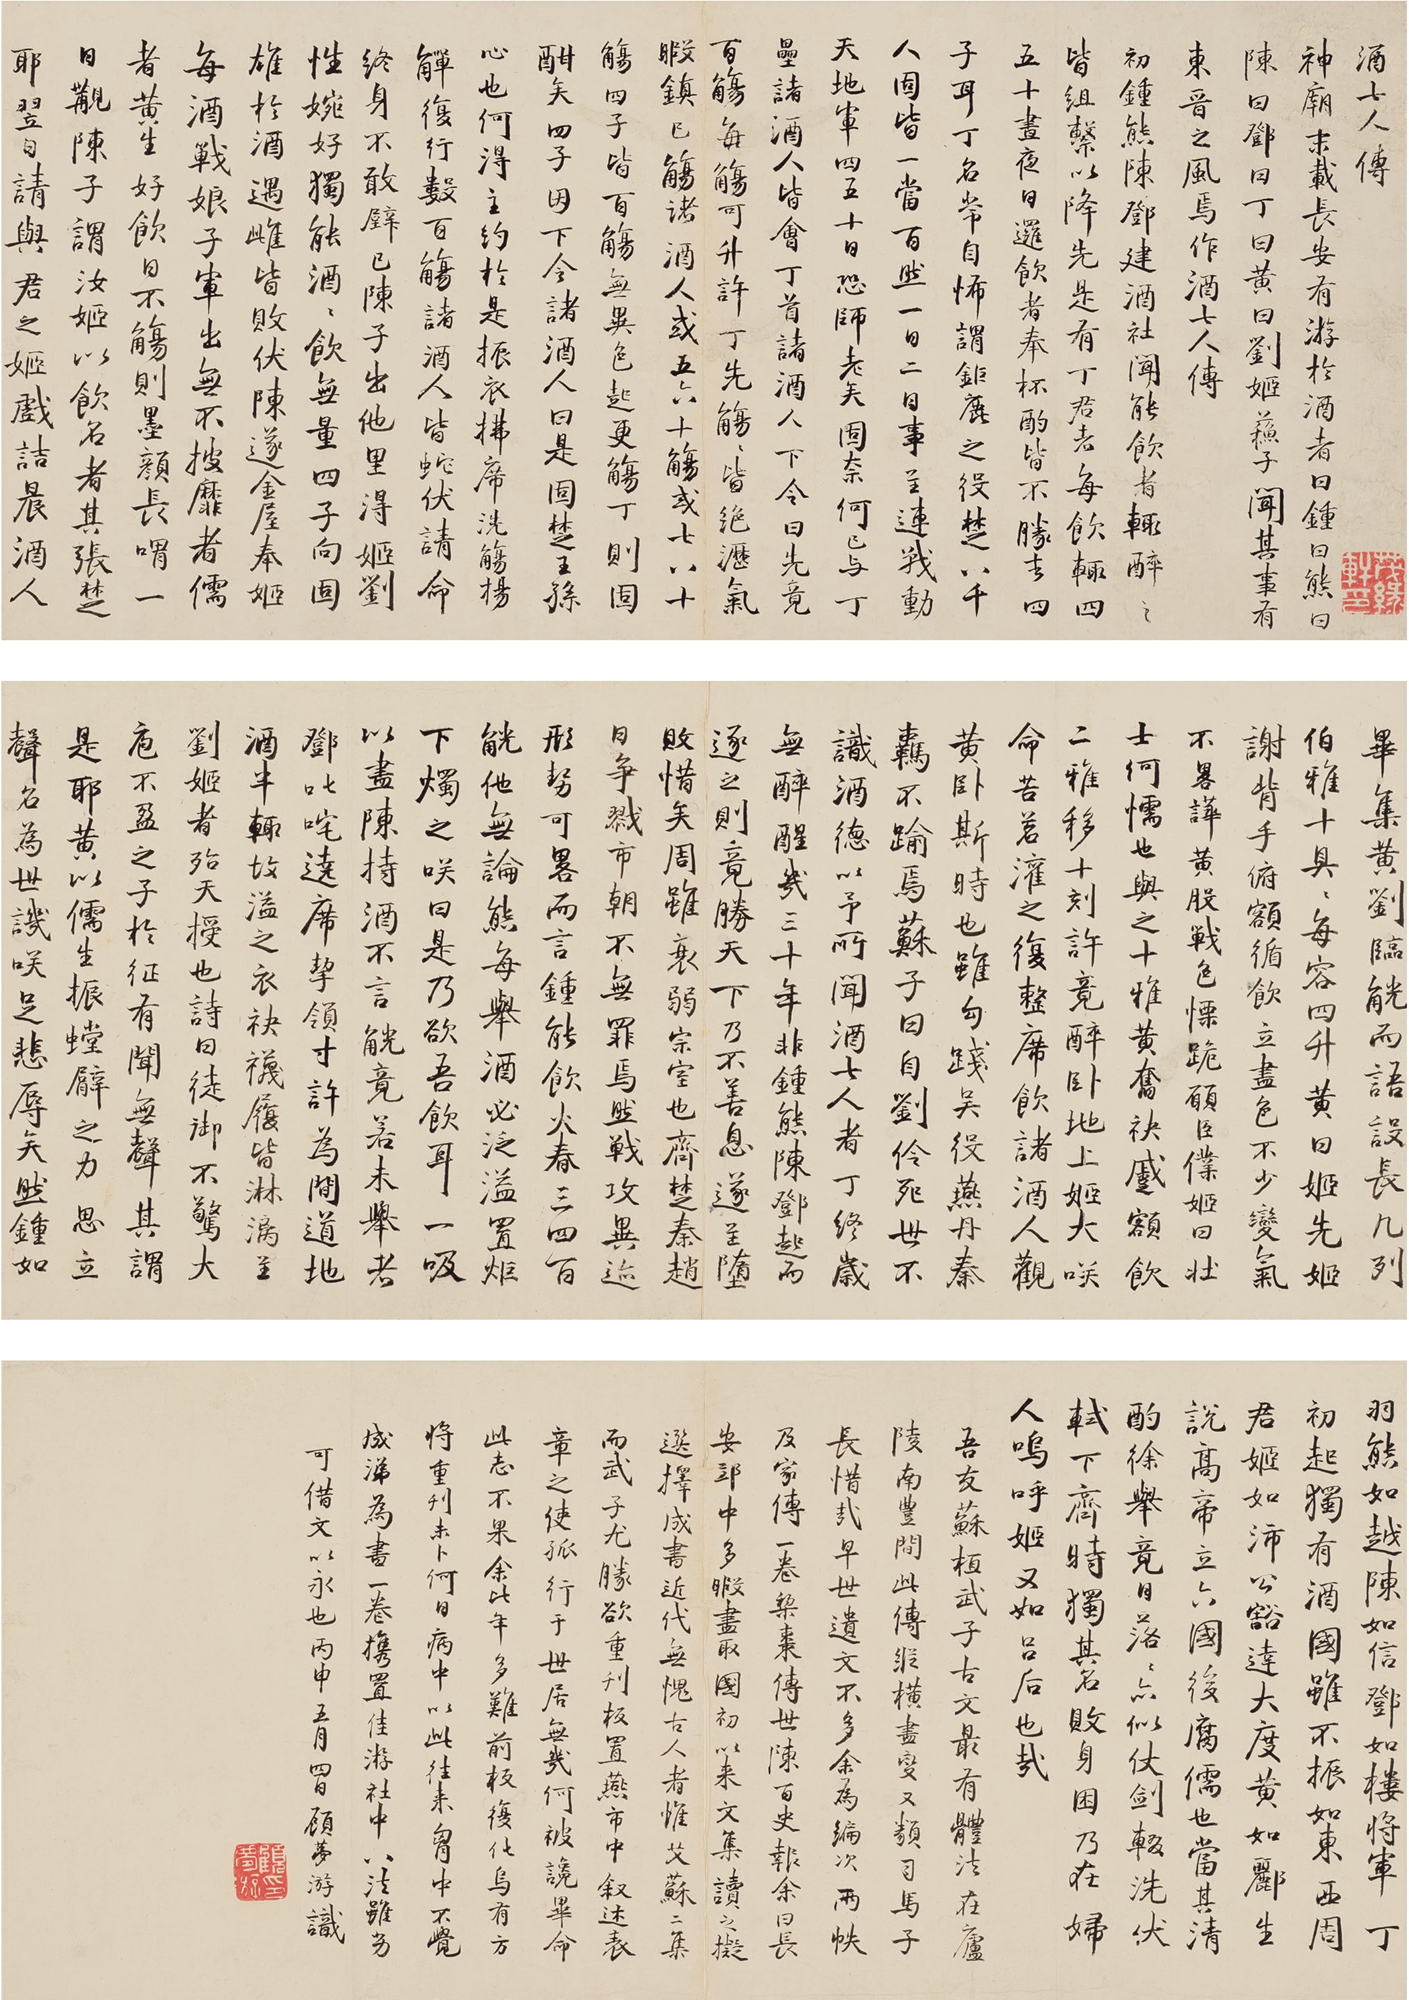 酒七人傳
神廟末載長安有游於酒者曰鍾曰熊曰
陳曰鄧曰丁曰黃曰劉姬蘇子聞其事有
東晉之風焉作酒七人傳
初鍾熊陳鄧建酒社聞能飲者輒醉之
皆組繫以降先是有丁君者每飲輒四
五十晝夜日邏飲者奉杯酌皆不勝去四
子耳丁名常自怖謂鉅鹿之役楚八千
人固皆一當百然一日二日事至連戰動
天地軍四五十日恐師老矣固奈何已与丁
壘諸酒人皆會丁首諸酒人下令曰先竟
百觴每觴可升許丁先觴觴皆絕瀝氣
暇鎮已觴諸酒人或五六十觴或七八十
觴四子皆百觴無異色起更觴丁則固
酣矣四子因下令諸酒人曰是固楚王孫
心也何得主約於是振衣拂席洗觴揚
觶復行數百觴諸酒人皆蛇伏請命
終身不敢壁已陳子出他里得姬劉
性婉好獨能酒酒飲無量四子向固
雄於酒遇雌皆敗伏陳遂金屋奉姬
每酒戰娘子軍出無不披靡者儒
者黃生好飲日不觴則墨顏長喟一
日覯陳子謂汝姬以飲名者其張楚
耶翌日請與君之姬戲詰晨酒人
畢集黃劉臨觥而語設長几列
伯雅十具具每容四升黃曰姬先姬
謝背手俯額循飲立盡色不少變氣
不畧譁黃股戰色慄跪願臣僕姬曰壯
士何懦也與之十雅黃奮袂蹙額飲
二雅移十刻許竟醉臥地上姬大咲
命苦茗灌之復整席飲諸酒人觀
黃臥斯時也雖勾踐吳役燕丹秦
轟不踰焉蘇子曰自劉伶死世不
識酒德以予所聞酒七人者丁終歲
無醉醒幾三十年非鍾熊陳鄧起而
逐之則竟勝天下乃不善息遂至墮
敗惜矣周雖衰弱宗室也齊楚秦趙
日爭戮市朝不無罪焉然戰攻異迹
形勢可畧而言鍾能飲火春三四百
觥他無論熊每舉酒必泛溢置炬
下燭之咲曰是乃欲吾飲耳一吸
以盡陳持酒不言觥竟若未舉者
鄧叱咤遶席挈領寸許為間道地
酒半輒故溢之衣袂襪履皆淋漓至
劉姬者殆天授也詩曰徒御不驚大
庖不盈之子於征有聞無聲其謂
是耶黃以儒生振螳臂之力思立
聲名為世譏咲足悲辱矣然鍾如
羽熊如越陳如信鄧如樓將軍丁
初起獨有酒國雖不振如東西周
君姬如沛公豁達大度黃如酈生
說高帝立六國後腐儒也當其清
酌徐舉竟日落落亦似仗劍輟洗伏
軾下齊時獨其名敗身困乃在婦
人嗚呼姬又如呂后也哉
吾友蘇桓武子古文最有體法在廬
陵南豐間此傳縱橫盡變又類司馬子
長惜哉早世遺文不多余為編次兩帙
及家傳一卷槧棗傳世陳百史報余曰長
安邸中多暇盡取國初以來文集讀之擬
選擇成書近代無愧古人者惟艾蘇二集
而武子尤勝欲重刊板置燕市中叙述表
章之使孤行于世居無幾何被讒畢命
此志不果余比年多難前板復化烏有方
將重刊未卜何日病中以此往來胷中不覺
成涕為書一卷携置佳游社中八法雖劣
可借文以永也丙申五月四日顧夢游識